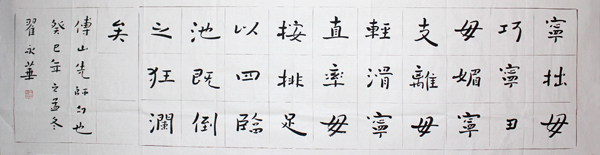 寧拙毋
巧寧丑
毋媚寧
支離毋
輕滑寧
直率毋
按排足
以四臨
池既倒
之狂瀾
矣
傅山先師句也
癸巳年之孟冬
翟永華